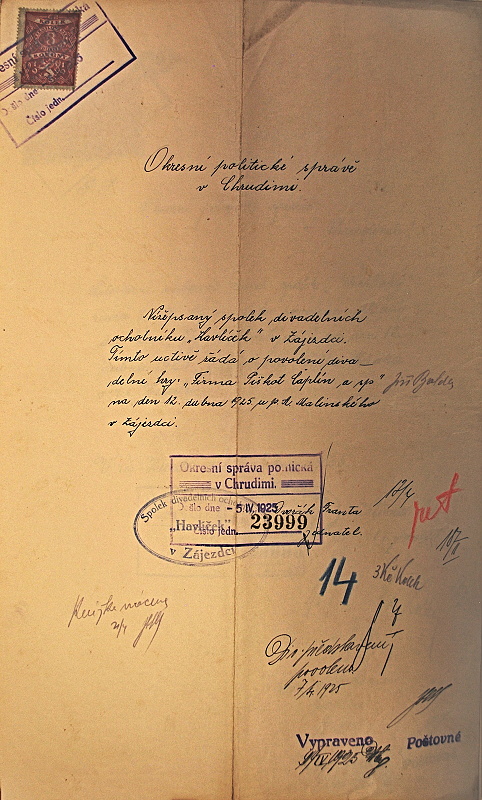 KOLEK
3
Došlo dne
Číslo jedn.
Okresní politické správě
v Chrudimi.
Nížepsaný spolek divadelních
ochotníků „Havlíček" v Zájezdci.
Tímto uctivě žádá o povolení diva-
delní hry. „Firma Piškot Cáplín a sp" Jiří Balda
na den 12. dubna 1925 u p. A. Malinského
v Zájezdci.
Okresní správa politická
v Chrudimi.
Došlo dne - 5 IV. 1925
Číslo jedn. 23999
Spolek divadelních ochot
„Havlíček"
v Zájezdci
Franta
jednatel.
14
3 Kč Kolek
představení
povoleno
7/4 1925
Vypraveno
Poštovné
9/IV 1925